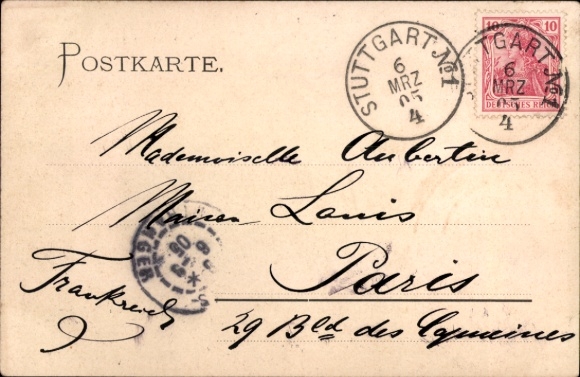 POSTKARTE.
STUTTGART. No1
6
MRZ
05
4
10 10
DEUTSCHES REICH
STUTTGART No1
6
MRZ
05
4
Mademoiselle Aubertin
Maison Louis
Paris
Frankreich
29 Bld des Capucines